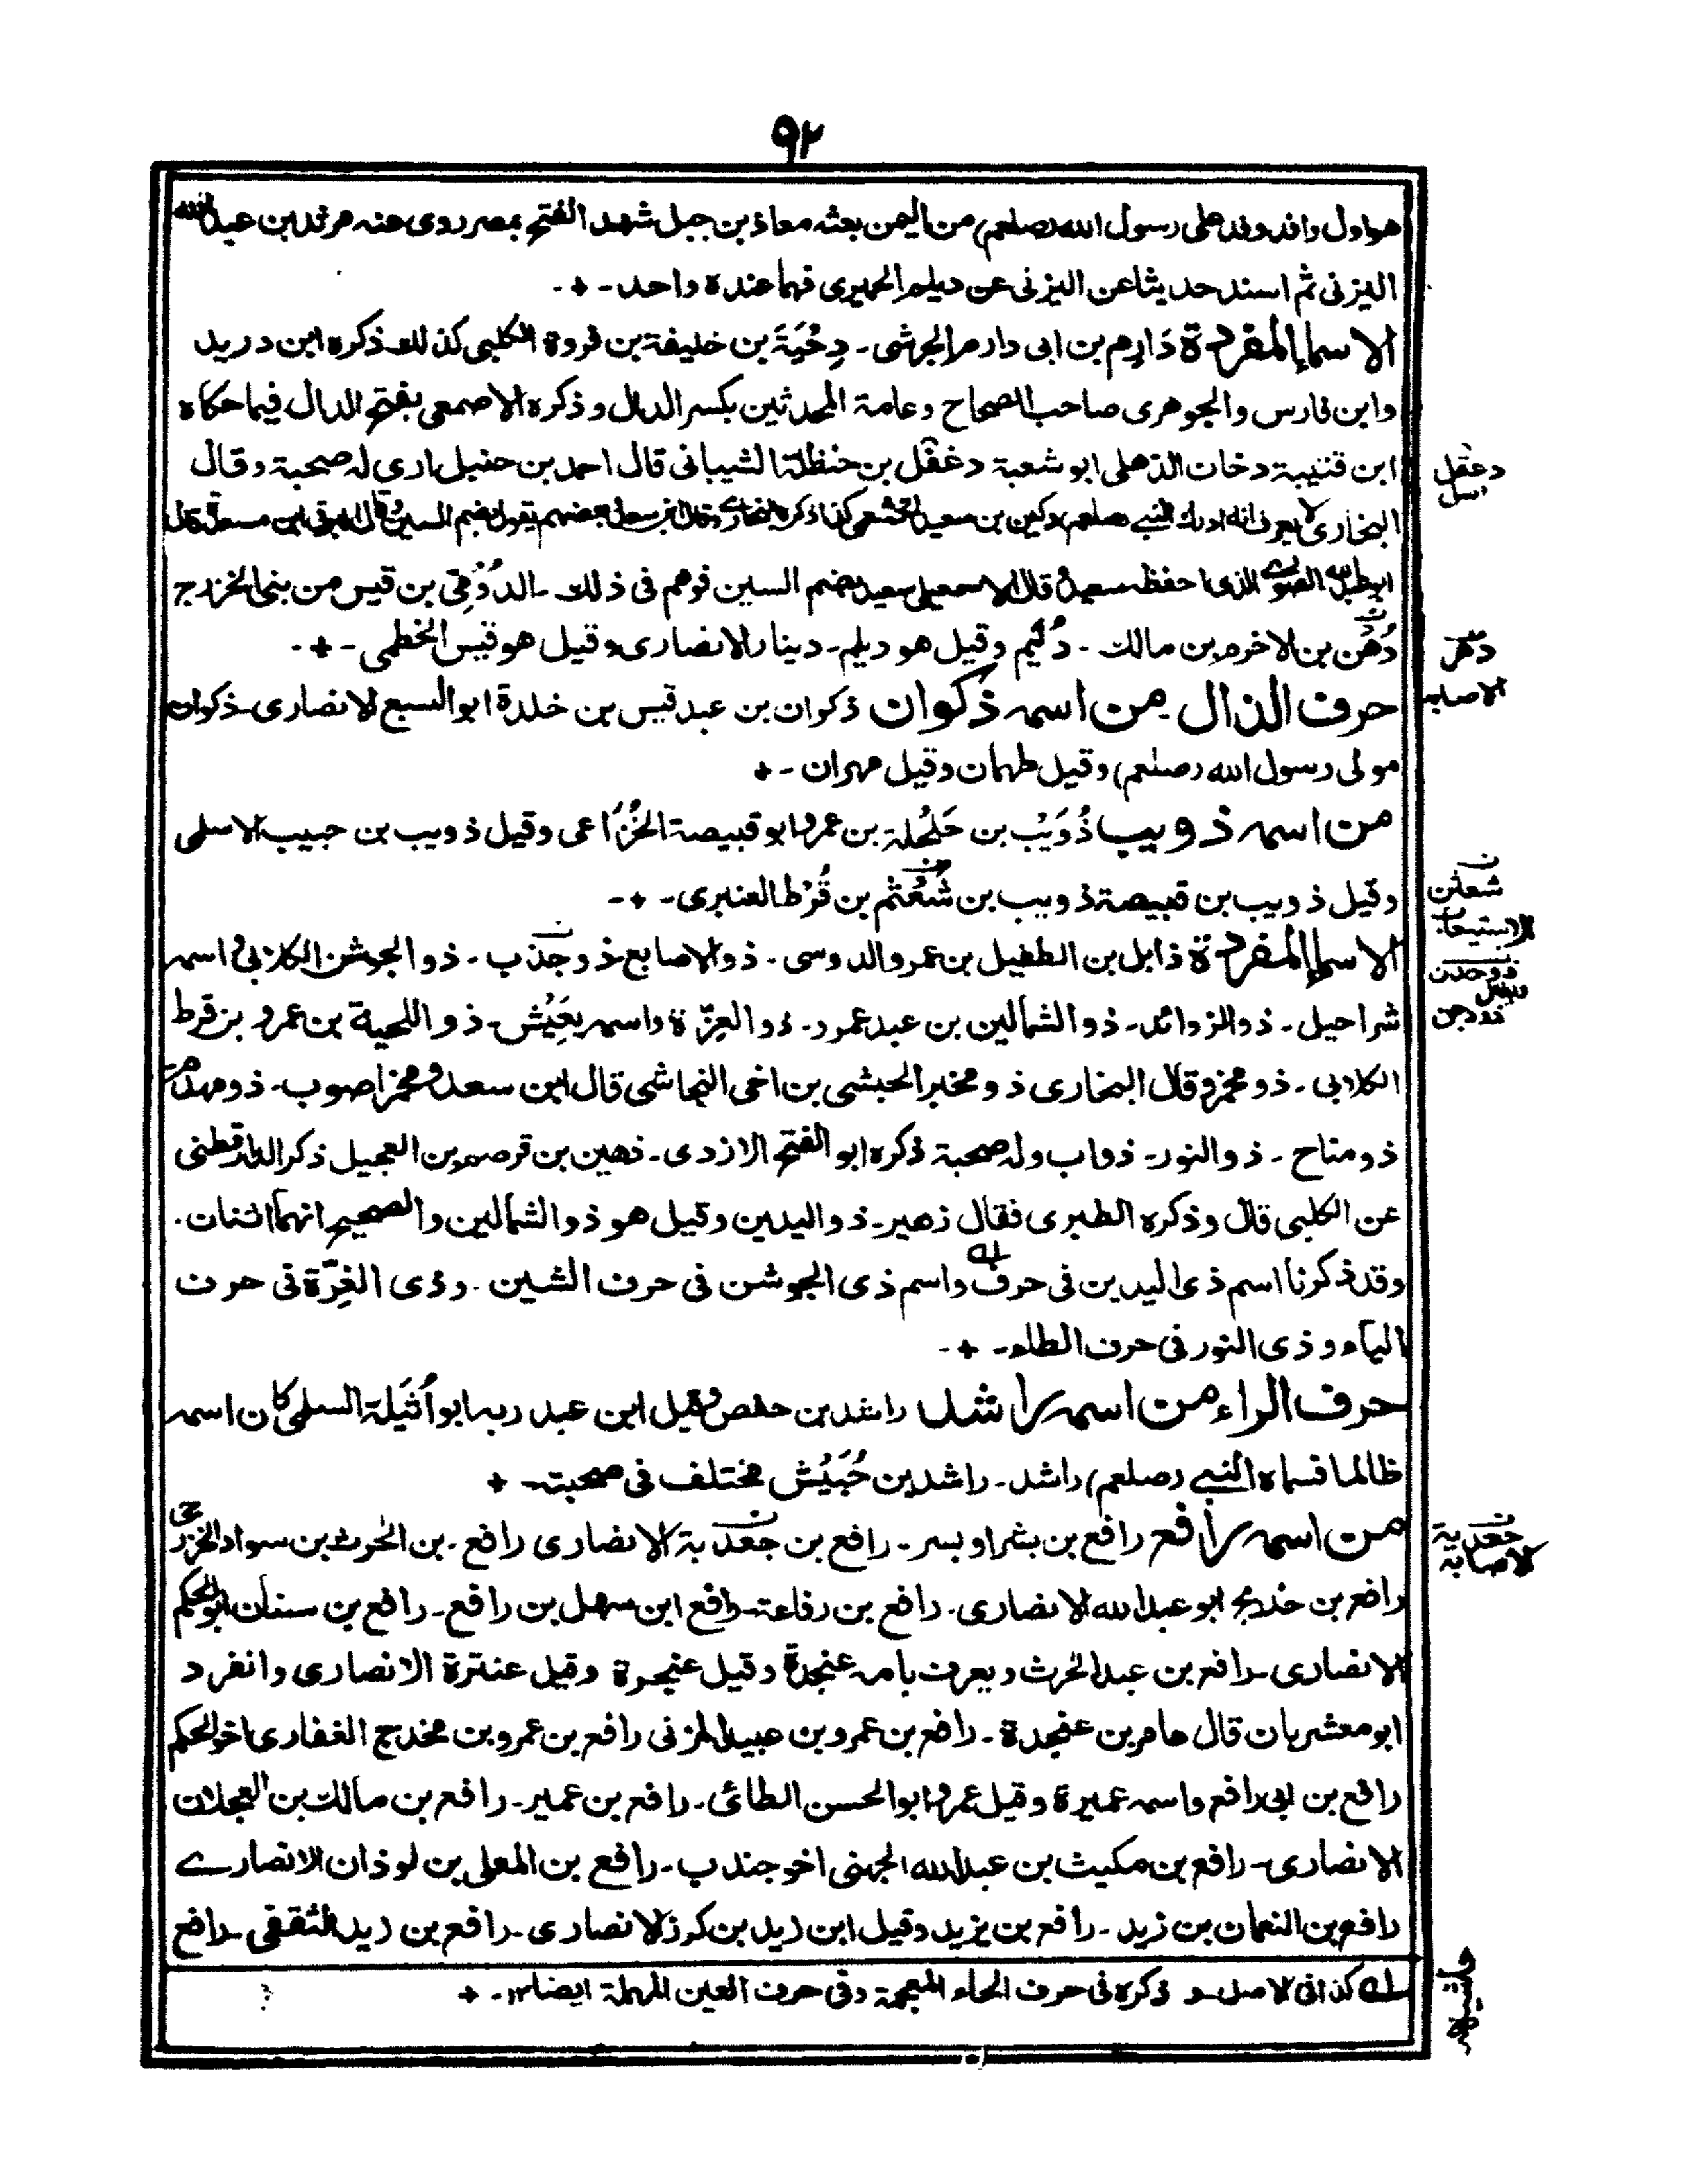 ٩٢
هو اول وافد وفد على رسول الله (صلعم) من اليمن بعثه معاذ بن جبل شهد الفتح بمصر روى عنه مرثد بن عبدالله
اليزنى ثم اسند حديثا عن اليزنى عن ديلم الحميرى فهما عنده واحد ـ + ـ
الاسماء المفردة دَارِم بن ابى دارم الجرشى ـ دِحْيَةَ بن خليفة بن فروة الكلبى كذلك ذكره ابن دريد
وابن فارس والجوهرى صاحب الصحاح وعامة المحدثين بكسر الدال وذكره الاصمعى بفتح الدال فيما حكاه
ابن قتيبة دخان الذهلى ابو شعبة دغفل بن حنظلة الشيبانى قال احمد بن حنبل ارى له صحبة وقال
البخارى لا يعرف انه ادرك النبى صلعم دكين بن سعيد الخثعمى كذا ذكره البخارى بعضهم يقول بضم السين
الذى احفظه سعيد قال الاسمعيلى سعيد بضم السين فوهم فى ذلك ـ بن قيس من بنى الخزرج
دُهْن بن الاخرم بن مالك ـ دُلَيم وقيل هو ديلم ـ دينار الانصارى وقيل هو قيس الخطمى ـ + ـ
حرف الذال ـ من اسمه ذكوان ذكوان بن عبد قيس بن خلدة ابو السبع الانصارى ـ ذكوان
مولى رسول الله (صلعم) وقيل طهمان وقيل مهران ـ +
من اسمه ذويب ذُوَيْب بن حَلْحَلة بن عمرو ابو قبيصة الخُزَاعى وقيل ذويب بن حبيب الاسلمى
وقيل ذويب بن قبيصة ذويب بن شُعْثم بن قُرْط العنبرى ـ + ـ
الاسماء المفردة ذابل بن الطفيل بن عمرو الدوسى ـ ذو الاصابع ذو جذب ـ ذو الجوشن الكلابى اسمه
شراحيل ـ ذو الزوائد ـ ذو الشمالين بن عبد عمرو ـ ذو العزّة واسمه يعَيْش ـ ذو اللحية بن عمرو بن قرط
الكلابى ـ ذو مخمر وقال البخارى ذو مخبر الحبشى بن اخى النجاشى قال ابن سعد ومخمر اصوب ـ ذو مهدم
ذو مناح ـ ذو النور ـ ذواب وله صحبة ذكره ابو الفتح الازدى ـ ذهين بن قرصم بن العجيل ذكر الدارقطنى
عن الكلبى قال وذكره الطبرى فقال زهير ـ ذو اليدين وقيل هو ذو الشمالين والصحيح انهما اثنان ـ
وقد ذكرنا اسم ذى اليدين فى حرف له واسم ذى الجوشن فى حرف الشين ـ وذى الغِرّة فى حرف
الياء وذى النور فى حرف الطاء ـ + ـ
حرف الراء من اسمه راشد راشد بن حفص وقيل ابن عبد ربه ابو اُثَيلة السلمى كان اسمه
ظالما فسماه النبى (صلعم) راشد ـ راشد بن حُبَيْش مختلف فى صحبته ـ +
من اسمه رافع رافع بن بشر او بسر ـ رافع بن جعدبة الانصارى رافع ـ بن الحرث بن سواد الخزرجى
رافع بن خديج ابو عبدالله الانصارى ـ رافع بن رفاعة ـ رافع ابن سهل بن رافع ـ رافع بن سنان ابو الحكم
الانصارى ـ رافع بن عبد الحرث ويعرف بامه عنجدة وقيل عنجرة وقيل عنترة الانصارى وانفرد
ابو معشر بان قال عامر بن عنجدة ـ رافع بن عمرو بن عبيد المزنى رافع بن عمرو بن مخدج الغفارى اخو الحكم
رافع بن ابى رافع واسمه عميرة وقيل عمرو ابو الحسن الطائى ـ رافع بن عمير ـ رافع بن مالك بن العجلان
الانصارى ـ رافع بن مكيث بن عبدالله الجهنى اخو جندب ـ رافع بن المعلى بن لوذان الانصارى
رافع بن النعمان بن زيد ـ رافع بن يزيد وقيل ابن زيد بن كرز الانصارى ـ رافع بن زيد الثقفى ـ رافع
له كذا فى الاصل و ذكره فى حرف الخاء المعجمة وفى حرف العين المهملة ايضا ١٢ ـ +
دغفل
اصل
الاصابه
ن
شعثن
الاستيعاب
ذو جدن
ذو دجن
ن
جعدبة
الاصابة